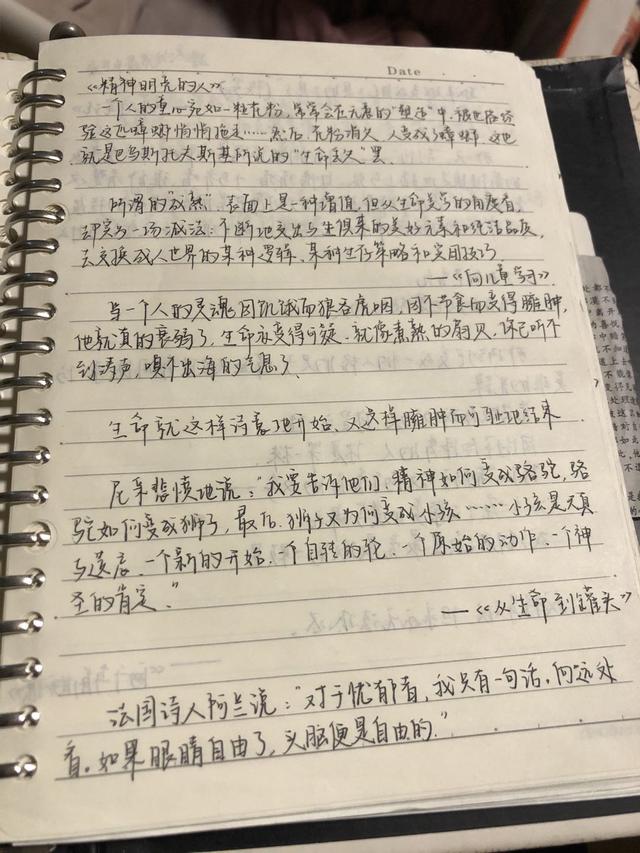 Date
《精神明亮的人》
一个人的童心宛如一粒花粉，常常会在无意的“塑造”中，被世俗经
验这匹蟑螂悄悄拖走……然后，花粉消失，人变成了蟑螂。这也
就是巴乌斯托夫斯基所说的“生命丢失”罢。
所谓的“成熟”，表面上是一种增值，但从生命美学的角度看，
却实为一场减法：不断地交出与生俱来的美好元素和纯洁品质，
去交换成人世界的某种逻辑、某种生存策略和实用技巧。
——《向儿童学习》
当一个人的灵魂因饥饿而狼吞虎咽，因不节食而变得臃肿，
他就真的衰弱了，生命亦变得可疑，就像煮熟的扇贝，你已听不
到涛声，嗅不出海的气息了。
生命就这样诗意地开始，又这样臃肿而可耻地结束
尼采悲愤地说：“我要告诉他们，精神如何变成骆驼，骆
驼如何变成狮子，最后，狮子又为何变成小孩……小孩是天真
与遗忘，一个新的开始，一个自转的轮，一个原始的动作，一个神
圣的肯定。”
——《从生命到罐头》
法国诗人阿兰说：“对于忧郁者，我只有一句话，向远处
看。如果眼睛自由了，头脑便是自由的。”